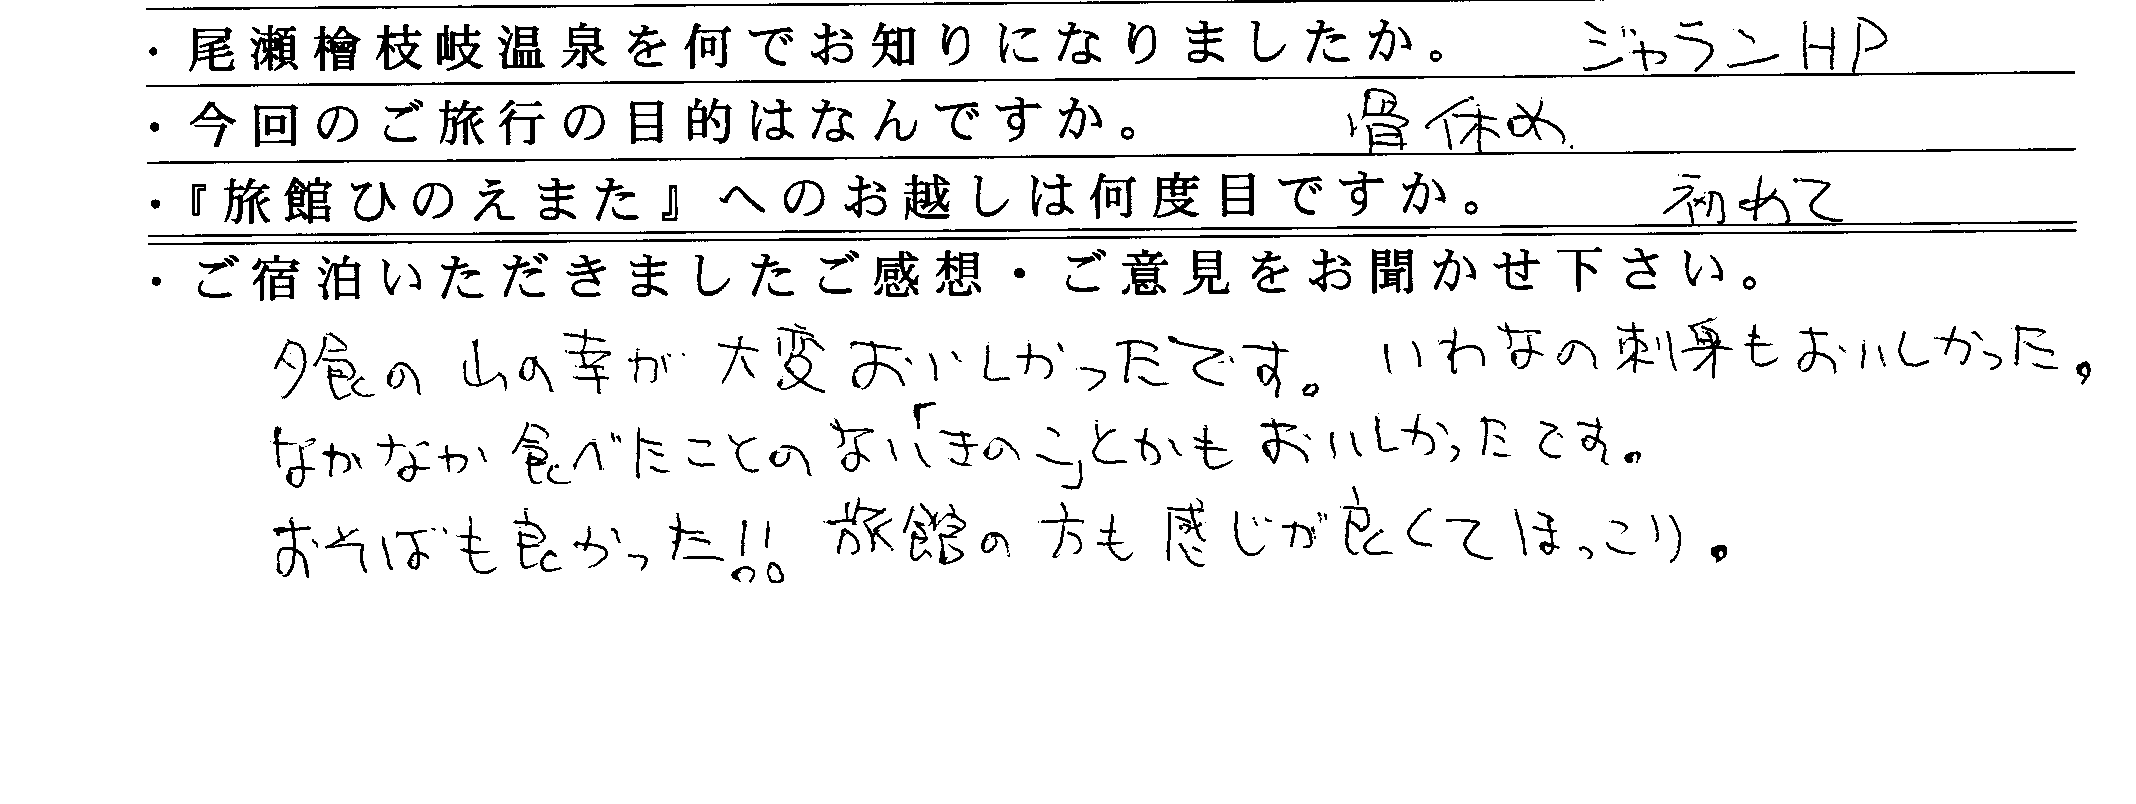 ・尾瀬檜枝岐温泉を何でお知りになりましたか。 ジャランHP
・今回のご旅行の目的はなんですか。 骨休め.
・『旅館ひのえまた』へのお越しは何度目ですか。 初めて
・ご宿泊いただきましたご感想・ご意見をお聞かせ下さい。
夕食の山の幸が大変おいしかったです。いわなの刺身もおいしかった。
なかなか食べたことのない「きのこ」とかもおいしかったです。
おそばも良かった!! 旅館の方も感じが良くてほっこり。